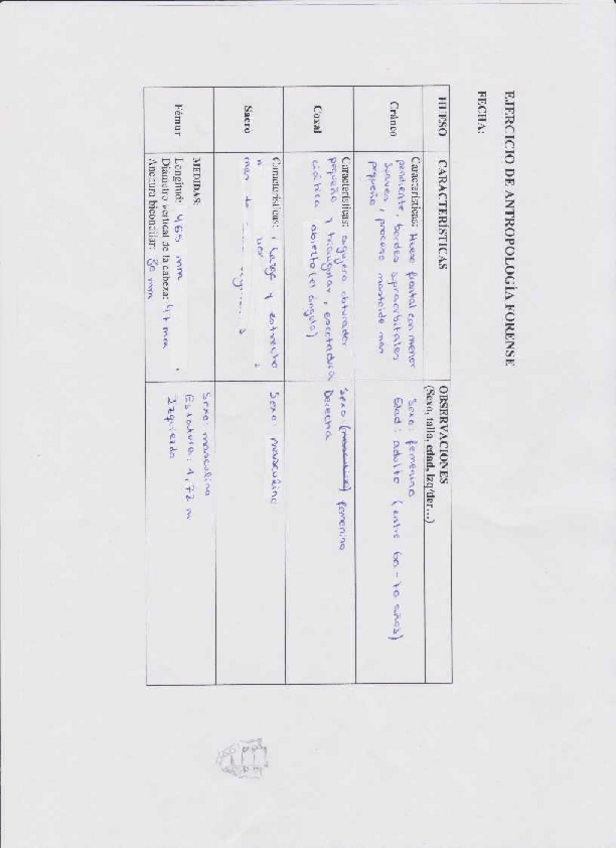 EJERCICIO DE ANTROPOLOGÍA FORENSE
FECHA:
HUESO
CARACTERÍSTICAS
OBSERVACIONES
(Sexo, talla, edad, izq/der…)
Cráneo
Características: Hueso frontal con menor
pendiente, bordes supraorbitales
suaves, proceso mastoide más
pequeño
Sexo: femenino
Edad: adulto (entre 60-70 años)
Coxal
Características: agujero obturador
pequeño y triangular, escotadura
ciática abierta (el ángulo)
Sexo (masculino) femenino
Derecha
Sacro
Características: largo y estrecho
Sexo: masculino
Fémur
MEDIDAS:
Longitud: 465 mm
Diámetro vertical de la cabeza: 47 mm
Anchura bicondilar: 80 mm
Sexo: masculino
Estatura: 1,72 m
Izquierdo